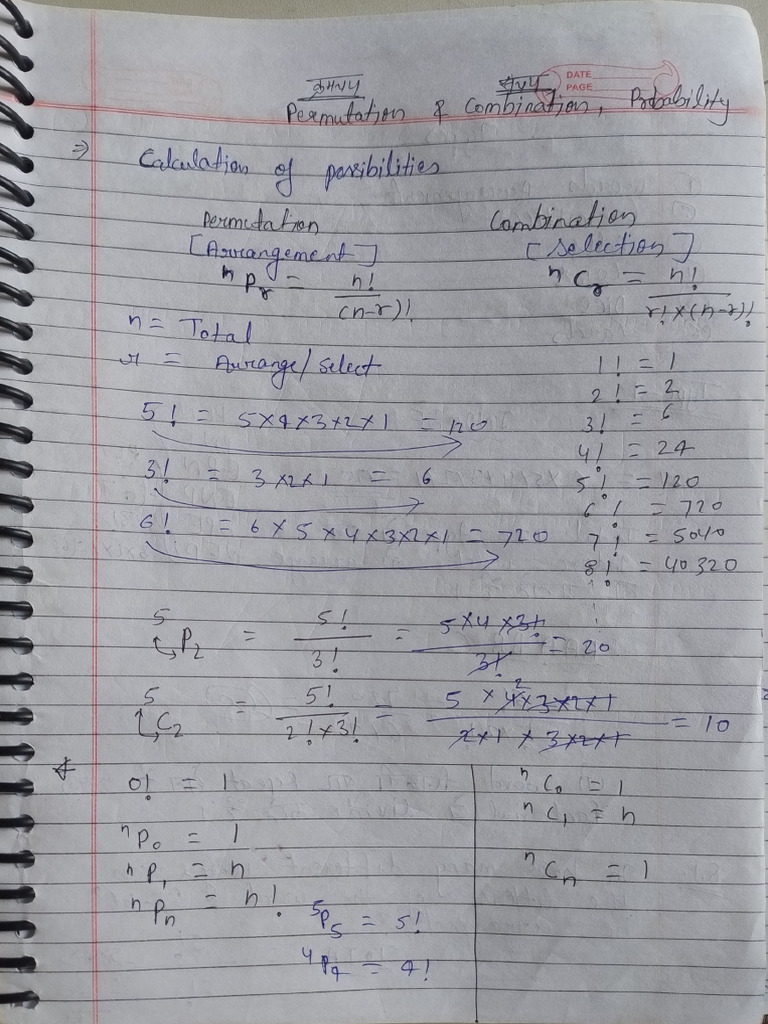 DATE
PAGE
क्रमचय संचय
Permutation & Combination, Probability
⇒ Calculation of possibilities
Permutation Combination
[Arrangement] [selection]
ⁿPᵣ = n!/(n-r)! ⁿCᵣ = n!/r!×(n-r)!
n = Total
r = Arrange/select
1! = 1
2! = 2
5! = 5×4×3×2×1 = 120
3! = 6
4! = 24
3! = 3×2×1 = 6
5! = 120
6! = 720
6! = 6×5×4×3×2×1 = 720
7! = 5040
8! = 40320
⁵P₂ = 5!/3! = 5×4×3!/3! = 20
⁵C₂ = 5!/2!×3! = 5×4×3×2×1/2×1×3×2×1 = 10
2
0! = 1
ⁿP₀ = 1
ⁿP₁ = n
ⁿPₙ = n!
⁵P₅ = 5!
⁴P₄ = 4!
ⁿC₀ = 1
ⁿC₁ = n
ⁿCₙ = 1